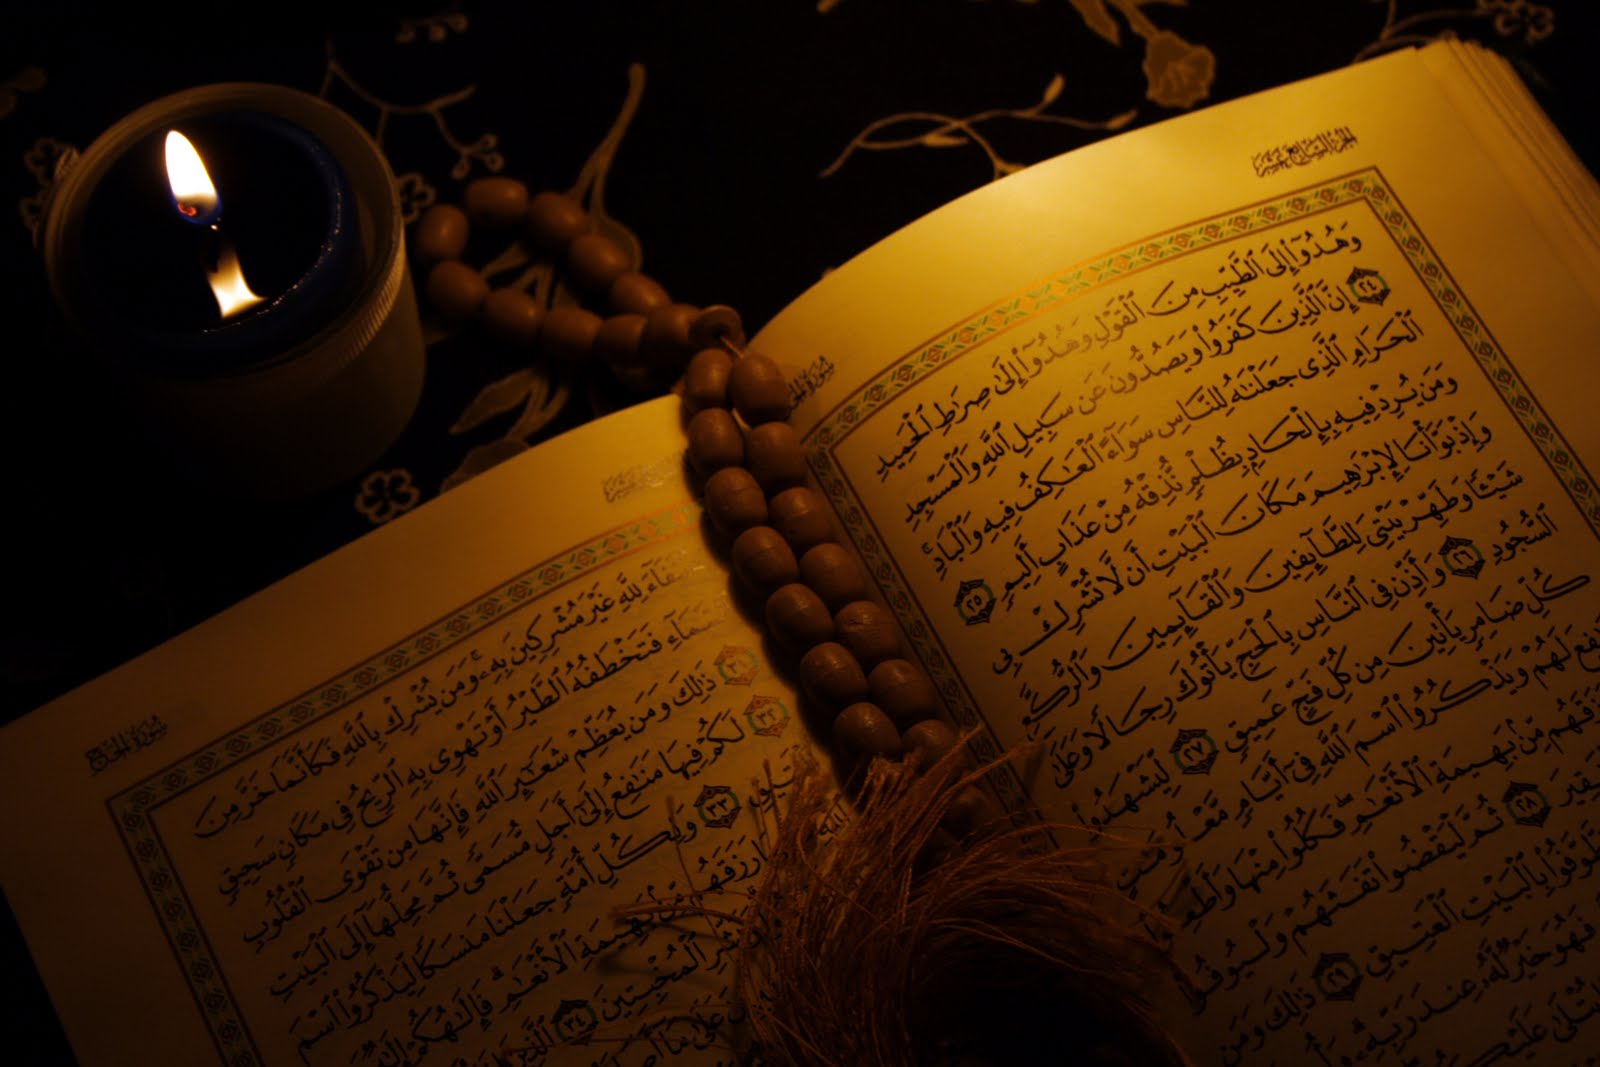 الجزء السابع عشر
سورة الحج
وَهُدُوٓا۟ إِلَى ٱلطَّيِّبِ مِنَ ٱلْقَوْلِ وَهُدُوٓا۟ إِلَىٰ صِرَٰطِ ٱلْحَمِيدِ
٢٤ إِنَّ ٱلَّذِينَ كَفَرُوا۟ وَيَصُدُّونَ عَن سَبِيلِ ٱللَّهِ وَٱلْمَسْجِدِ
ٱلْحَرَامِ ٱلَّذِى جَعَلْنَٰهُ لِلنَّاسِ سَوَآءً ٱلْعَٰكِفُ فِيهِ وَٱلْبَادِ ۚ
وَمَن يُرِدْ فِيهِ بِإِلْحَادٍۭ بِظُلْمٍ نُّذِقْهُ مِنْ عَذَابٍ أَلِيمٍ ٢٥
وَإِذْ بَوَّأْنَا لِإِبْرَٰهِيمَ مَكَانَ ٱلْبَيْتِ أَن لَّا تُشْرِكْ بِى
شَيْـًٔا وَطَهِّرْ بَيْتِىَ لِلطَّآئِفِينَ وَٱلْقَآئِمِينَ وَٱلرُّكَّعِ
ٱلسُّجُودِ ٢٦ وَأَذِّن فِى ٱلنَّاسِ بِٱلْحَجِّ يَأْتُوكَ رِجَالًا وَعَلَىٰ
كُلِّ ضَامِرٍ يَأْتِينَ مِن كُلِّ فَجٍّ عَمِيقٍ ٢٧ لِّيَشْهَدُوا۟
لَهُمْ وَيَذْكُرُوا۟ ٱسْمَ ٱللَّهِ فِىٓ أَيَّامٍ مَّعْلُومَٰتٍ
مِّنۢ بَهِيمَةِ ٱلْأَنْعَٰمِ ۖ فَكُلُوا۟ مِنْهَا وَأَطْعِمُوا۟
٢٨ ثُمَّ لْيَقْضُوا۟ تَفَثَهُمْ وَلْيُوفُوا۟
بِٱلْبَيْتِ ٱلْعَتِيقِ ٢٩ ذَٰلِكَ وَمَن
فَهُوَ خَيْرٌ لَّهُۥ عِندَ رَبِّهِۦ
سورة الحج
لِلَّهِ غَيْرَ مُشْرِكِينَ بِهِۦ ۚ وَمَن يُشْرِكْ بِٱللَّهِ فَكَأَنَّمَا خَرَّ مِنَ
فَتَخْطَفُهُ ٱلطَّيْرُ أَوْ تَهْوِى بِهِ ٱلرِّيحُ فِى مَكَانٍ سَحِيقٍ
٣١ ذَٰلِكَ وَمَن يُعَظِّمْ شَعَٰٓئِرَ ٱللَّهِ فَإِنَّهَا مِن تَقْوَى ٱلْقُلُوبِ
٣٢ لَكُمْ فِيهَا مَنَٰفِعُ إِلَىٰٓ أَجَلٍ مُّسَمًّى ثُمَّ مَحِلُّهَآ إِلَى ٱلْبَيْتِ
٣٣ وَلِكُلِّ أُمَّةٍ جَعَلْنَا مَنسَكًا لِّيَذْكُرُوا۟ ٱسْمَ
بَهِيمَةِ ٱلْأَنْعَٰمِ ۗ فَإِلَٰهُكُمْ إِلَٰهٌ
ٱلْمُخْبِتِينَ ٣٤ ٱلَّذِينَ